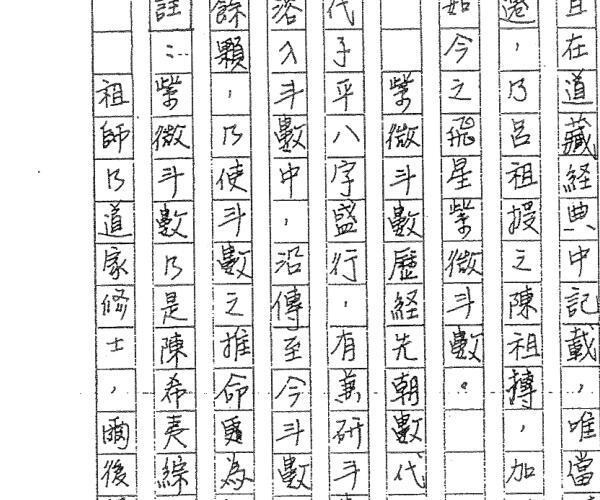 且在道藏經典中記載，唯當
港，乃呂祖授之陳祖摶，加
如今之飛星紫微斗數。
紫微斗數歷經先朝數代
代子平八字盛行，有兼研斗
洛入斗數中，沿傳至今斗數
餘顆，乃使斗數之推命更為
註：紫微斗數乃是陳希夷綜
祖師乃道家修士，爾後